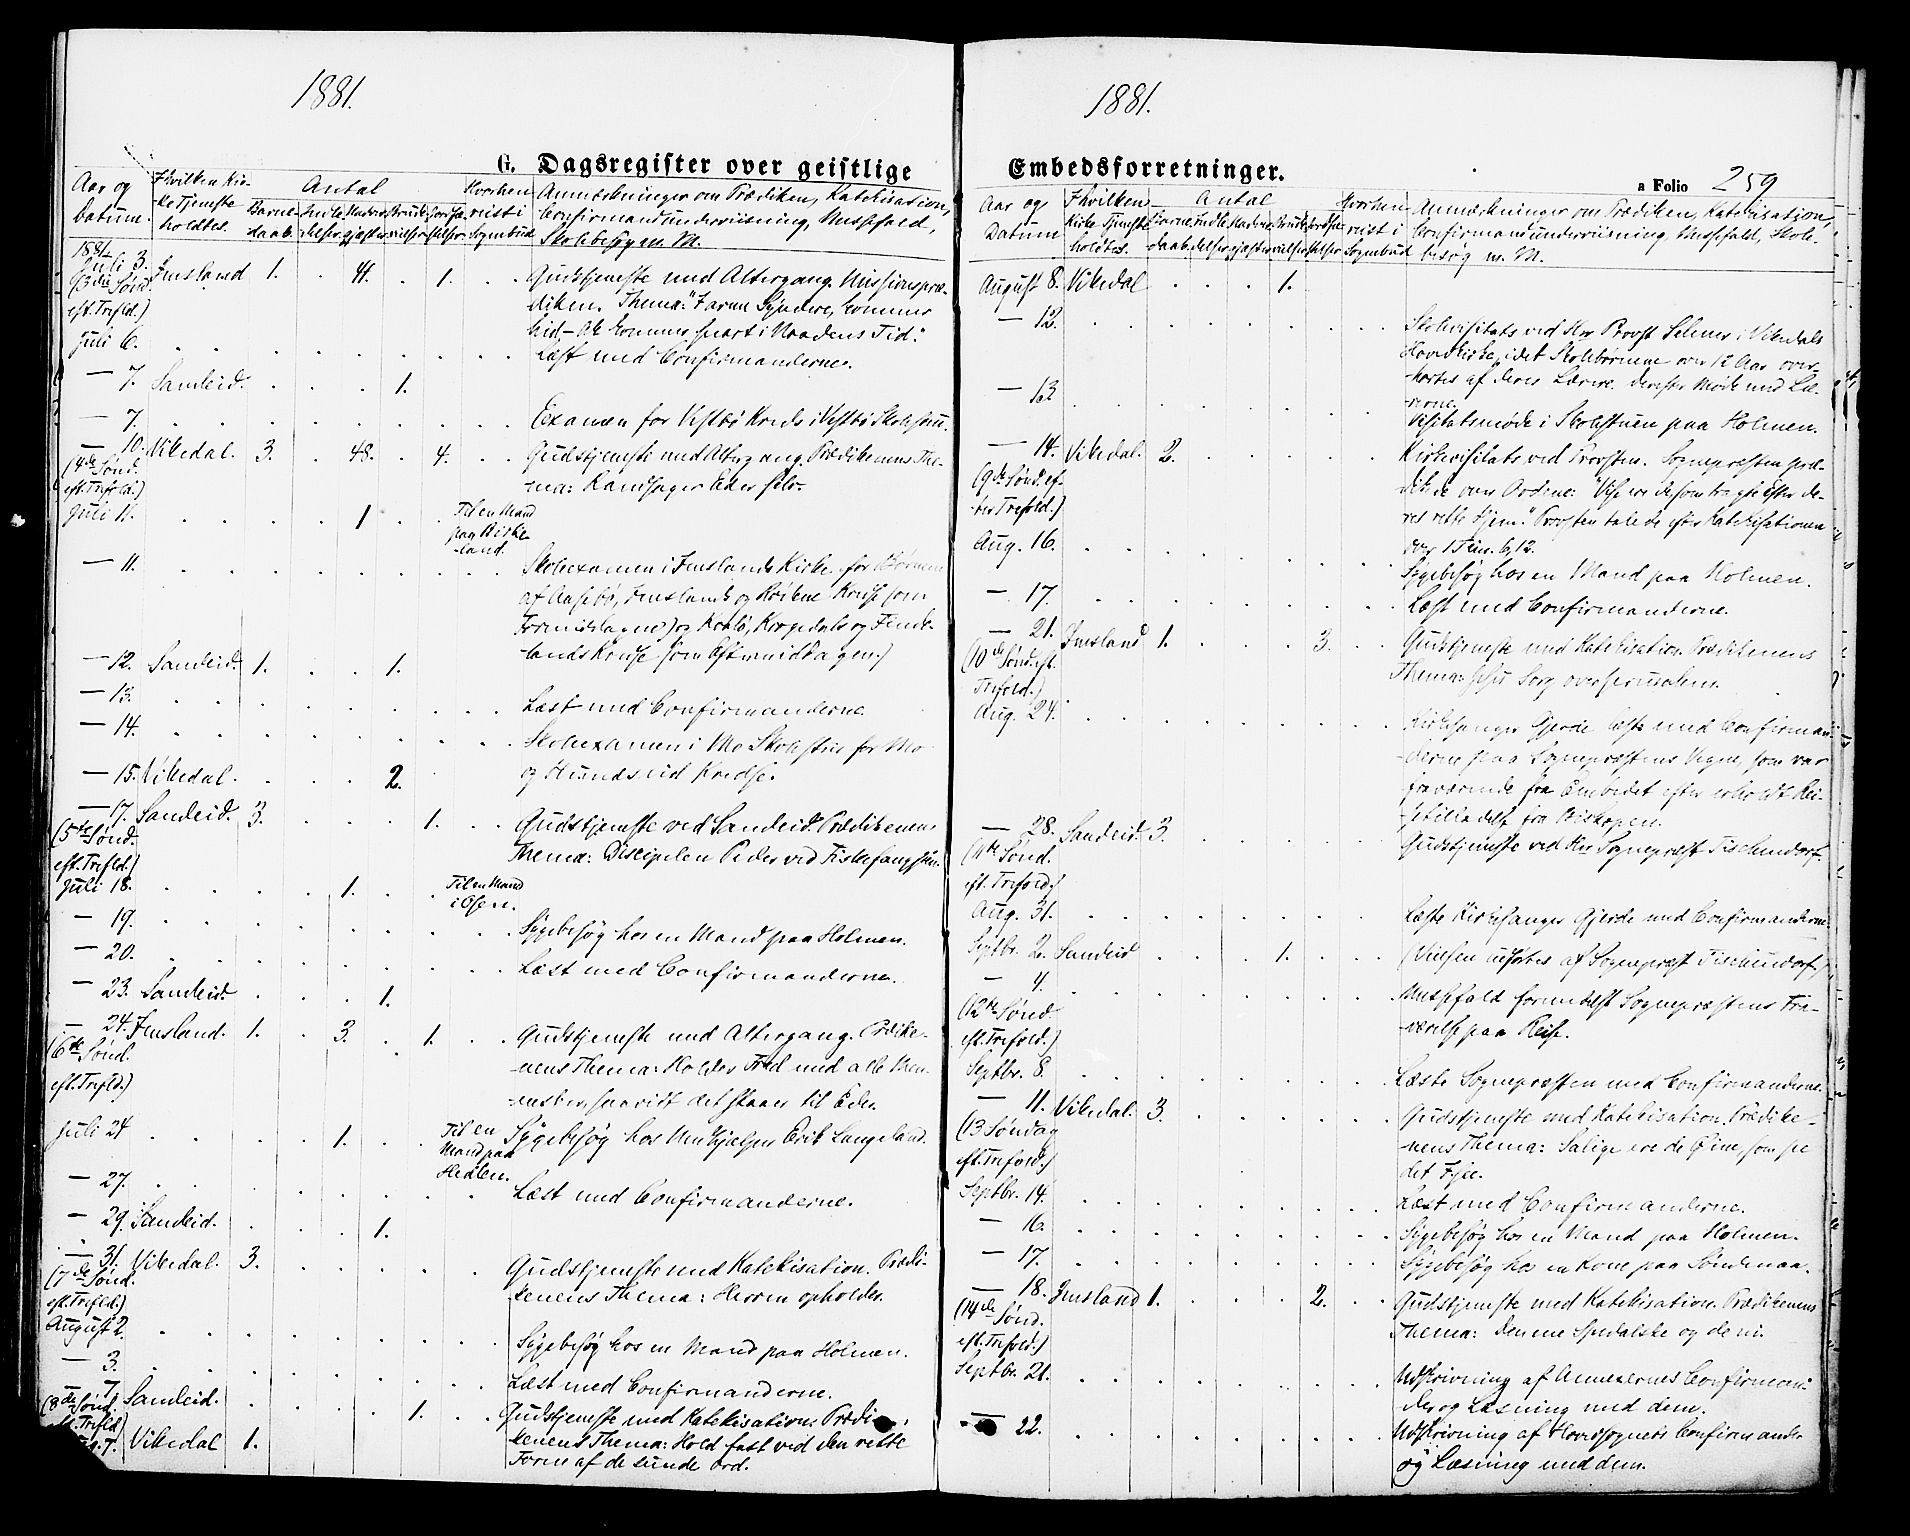 1881.
G. Dagsregister over geistlige
Aar og Datum.
I hvilken Kirke Tjeneste holdtes.
Antal
Barnedaab.
Hvorhen reist i Sognebud
Anmærkninger om Prædiken, Katekisation,
Confirmandunderviisning, Messefald,
Skolebesøg m. M.
1881
Juli 3. Imsland 1. 4. 1. Gudstjeneste med Altergang. Missionspræ-
(3die Sønd. diken. Thema: "I arme Syndere, kommer
eft. Trefld.) hid – Ak kommer snart i Naadens Tid."
Juli 6. Læst med Confirmanderne.
— 7. Sandeid. 1.
— 7. Examen for Vestbø Kreds i Vestbø Skolehuus.
— 10. Vikedal. 3. 48. 4. Gudstjeneste med Altergang. Prædikenens The-
(4de Sønd. ma: Randsager Eder selv.
eft. Trefold.)
Juli 11. 1 Til en Mand
paa Birke-
land.
— 11. Skoleexamen i Imslands Kirke for Børnene
af Aasebø, Imslands og Røikene Kredse (om
Formiddagen) og Kralø, Krogedals og Finde-
lands Kredse (om Eftermiddagen.)
— 12. Sandeid. 1. 1.
— 13. Læst med Confirmanderne.
— 14. Skoleexamen i Mo Skolestue for Mo
og Hundseid Kredse.
— 15. Vikedal. 2.
— 17. Sandeid. 3. 1. Gudstjeneste ved Sandeid. Prædikenens
(5te Sønd. Thema: Discipelen Peder ved Fiskefangsten.
eft. Trefld.)
Juli 18. 1. Til en Mand
i Ølen.
— 19. Sygebesøg hos en Mand paa Holmen.
— 20. Læst med Confirmanderne.
— 23. Sandeid. 1.
— 24. Imsland. 1. 3. 1. Gudstjeneste med Altergang. Prædike-
(6te Sønd. nens Thema: Holder Fred med alle Men-
eft. Trefld.) nesker, saavidt det staaer til Eder.
Juli 24 1. Til en Sygebesøg hos Medhjælper Erik Langeland.
Mand paa
Hedlen.
— 27. Læst med Confirmanderne.
— 29. Sandeid. 1.
— 31. Vikedal. 3. Gudstjeneste med Katekisation. Prædi-
(7de Sønd. kenens Thema: Herren opholder.
eft. Trefld.)
August 2. Sygebesøg hos en Mand paa Holmen.
— 3. Læst med Confirmanderne.
— 7 Sandeid. 1. Gudstjeneste med Katekisation. Prædi-
(8de Sønd. kenens Thema: Hold fast ved den rette
Trefld) Form af de sunde Ord.
7. Vikedal 1.
1881.
Embedsforretninger.
a Folio 259
Aar og Datum
I hvilken Kirke Tjeneste holdtes.
Antal
Hvorhen reist i Sognebud
Anmærkninger om Prædiken, Katekisation,
Confirmandunderviisning, Messefald, Skole-
besøg m. M.
August 8. Vikedal 1.
— 12. Skolevisitats ved Hr. Provst Selmer i Vikedals
Hovedkirke, idet Skolebørnene over 12 Aar over-
hørtes af deres Lærere. Derefter Møde med Læ-
rerne.
— 13 Visitatsmøde i Skolestuen paa Holmen.
— 14. Vikedal. 2. Kirkevisitats ved Provsten. Sognepræsten præ-
(9de Sønd. ef- dikede over Ordene: "Vise ere de som tragte efter de-
ter Trefold.) res rette Hjem." Provsten talede efter Katekisationen
over 1 Tim. 6,12.
Aug. 16. Sygebesøg hos en Mand paa Holmen.
— 17. Læst med Confirmanderne.
— 21. Imsland 1. 3. Gudstjeneste med Katekisation. Prædikenens
(10de Sønd. eft. Thema: Jesu Sorg over Jerusalem.
Trefold.)
Aug. 24. Kirkesanger Gjerde læste med Confirman-
derne paa Sognepræstens Vegne, som var
fraværende fra Embedet efter erholdt Rei-
setilladelse fra Biskopen.
— 28. Sandeid. 3. Gudstjeneste ved Hr. Sognepræst Tischendorf.
(11te Sønd.
eft. Trefold.)
Aug. 31. Læste Kirkesanger Gjerde med Confirmanderne.
Septbr. 2. Sandeid 1. (Vielsen udførtes af Sognepræst Tischendorf.)
— 4. Messefald formedelst Sognepræstens Fra-
(12te Sønd værelse paa Reise.
eft. Trefold.)
Septbr. 8. Læste Sognepræsten med Confirmanderne.
— 11. Vikedal. 3. Gudstjeneste med Katekisation. Prædike-
(13 Søndag nens Thema: Salige ere de Øine som see
eft. Trefold.) det I see.
Septbr. 14. Læst med Confirmanderne.
— 16. Sygebesøg hos en Mand paa Holmen.
— 17. Sygebesøg hos en Kone paa Søndenaa.
— 18. Imsland 1. 2. Gudstjeneste med Katekisation. Prædikenens
(14de Sønd. Thema: Den ene Spedalske og de ni.
eft. Trefold.)
Septbr. 21. Udskrivning af Annexernes Confirman-
der og Læsning med dem.
— 22. Udskrivning af Hovedsognets Confirmander
og Læsning med dem.